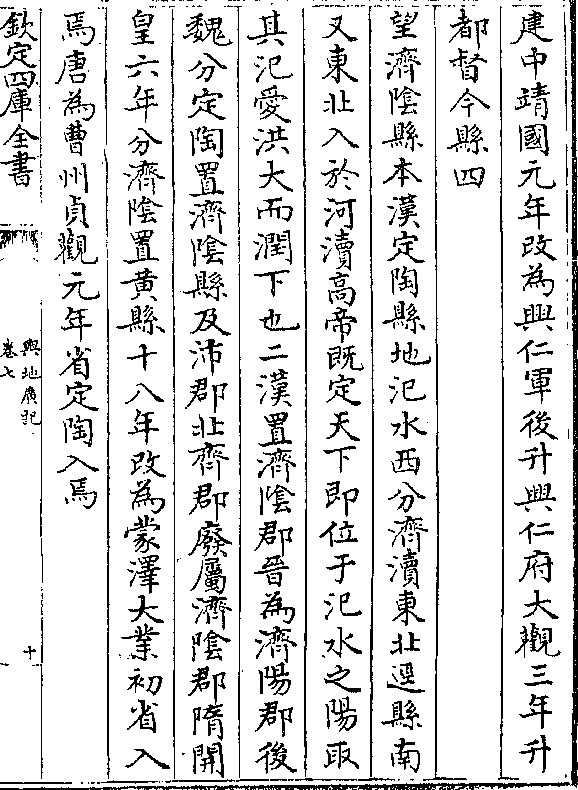 建中靖國元年改為興仁軍後升興仁府大觀三年升
都督今縣四
望濟陰縣本漢定陶縣地氾水西分濟瀆東北逕縣南
又東北入於河瀆高帝既定天下即位于氾水之陽取
其氾愛洪大而潤下也二漢置濟陰郡晉為濟陽郡後
魏分定陶置濟陰縣及沛郡北齊郡廢屬濟陰郡隋開
皇六年分濟陰置黄縣十八年改為蒙澤大業初省入
焉唐為曹州貞觀元年省定陶入焉
欽定四庫全書
輿地廣記
卷七
十